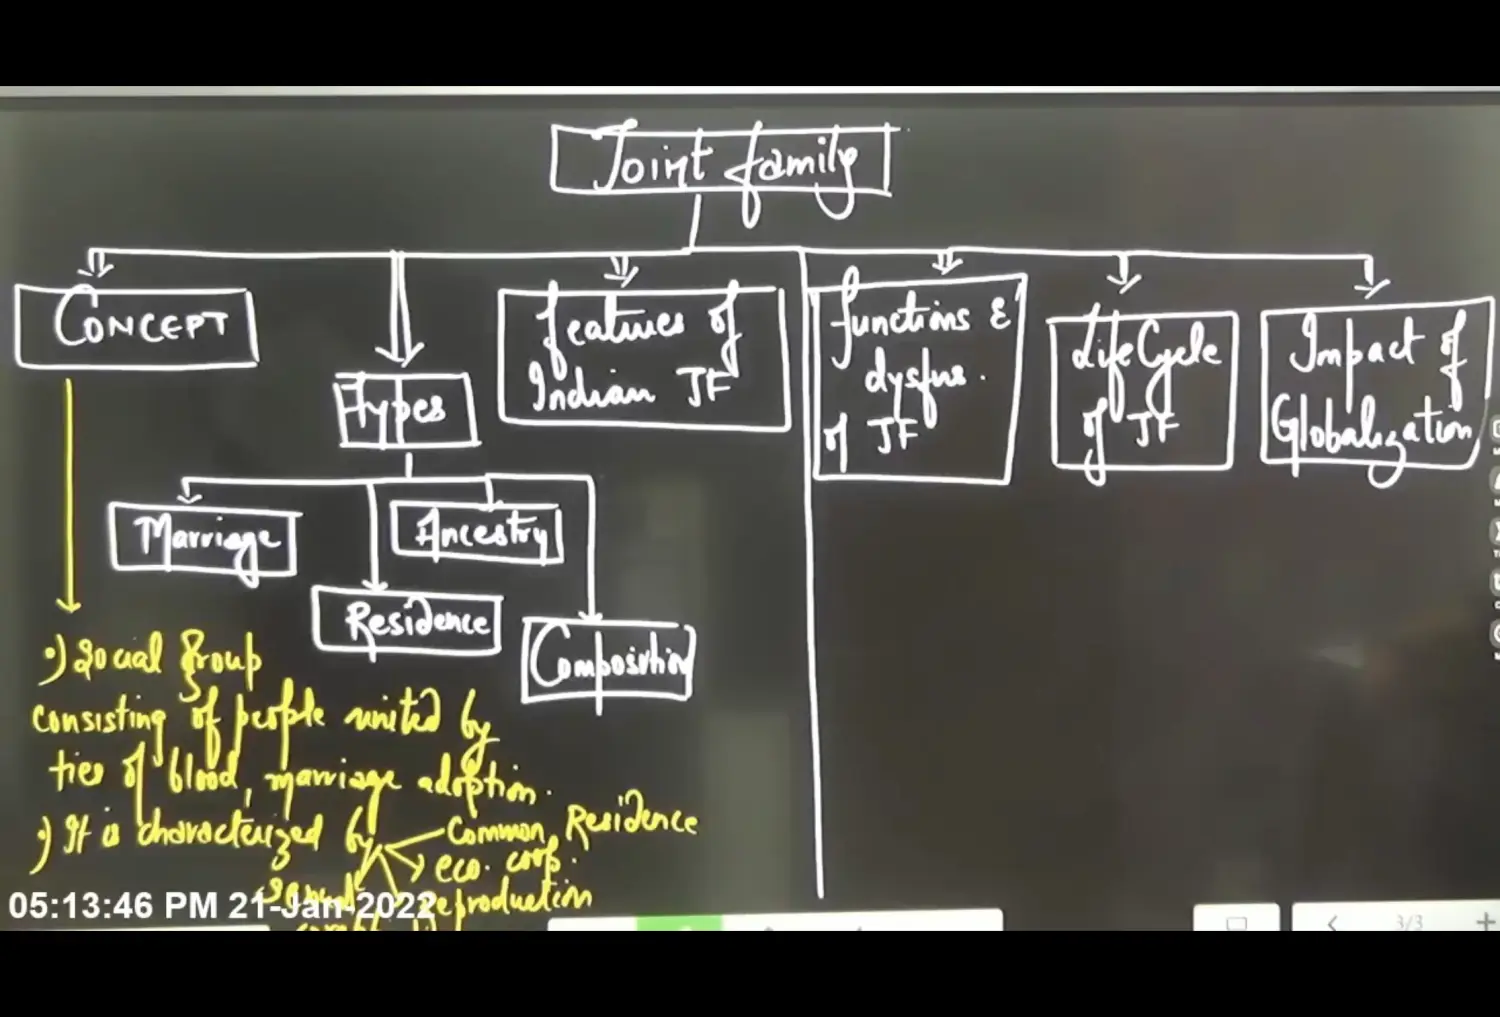 Joint family
CONCEPT
Types
features of
Indian JF
functions &
dysfns.
of JF
Life Cycle
of JF
Impact of
Globalization
Marriage
Ancestry
Residence
Composition
•) Social Group
consisting of people united by
ties of blood, marriage adoption.
•) It is characterized by
Common Residence
eco. corp.
Reproduction
05:13:46 PM 21-Jan-2022
3/3